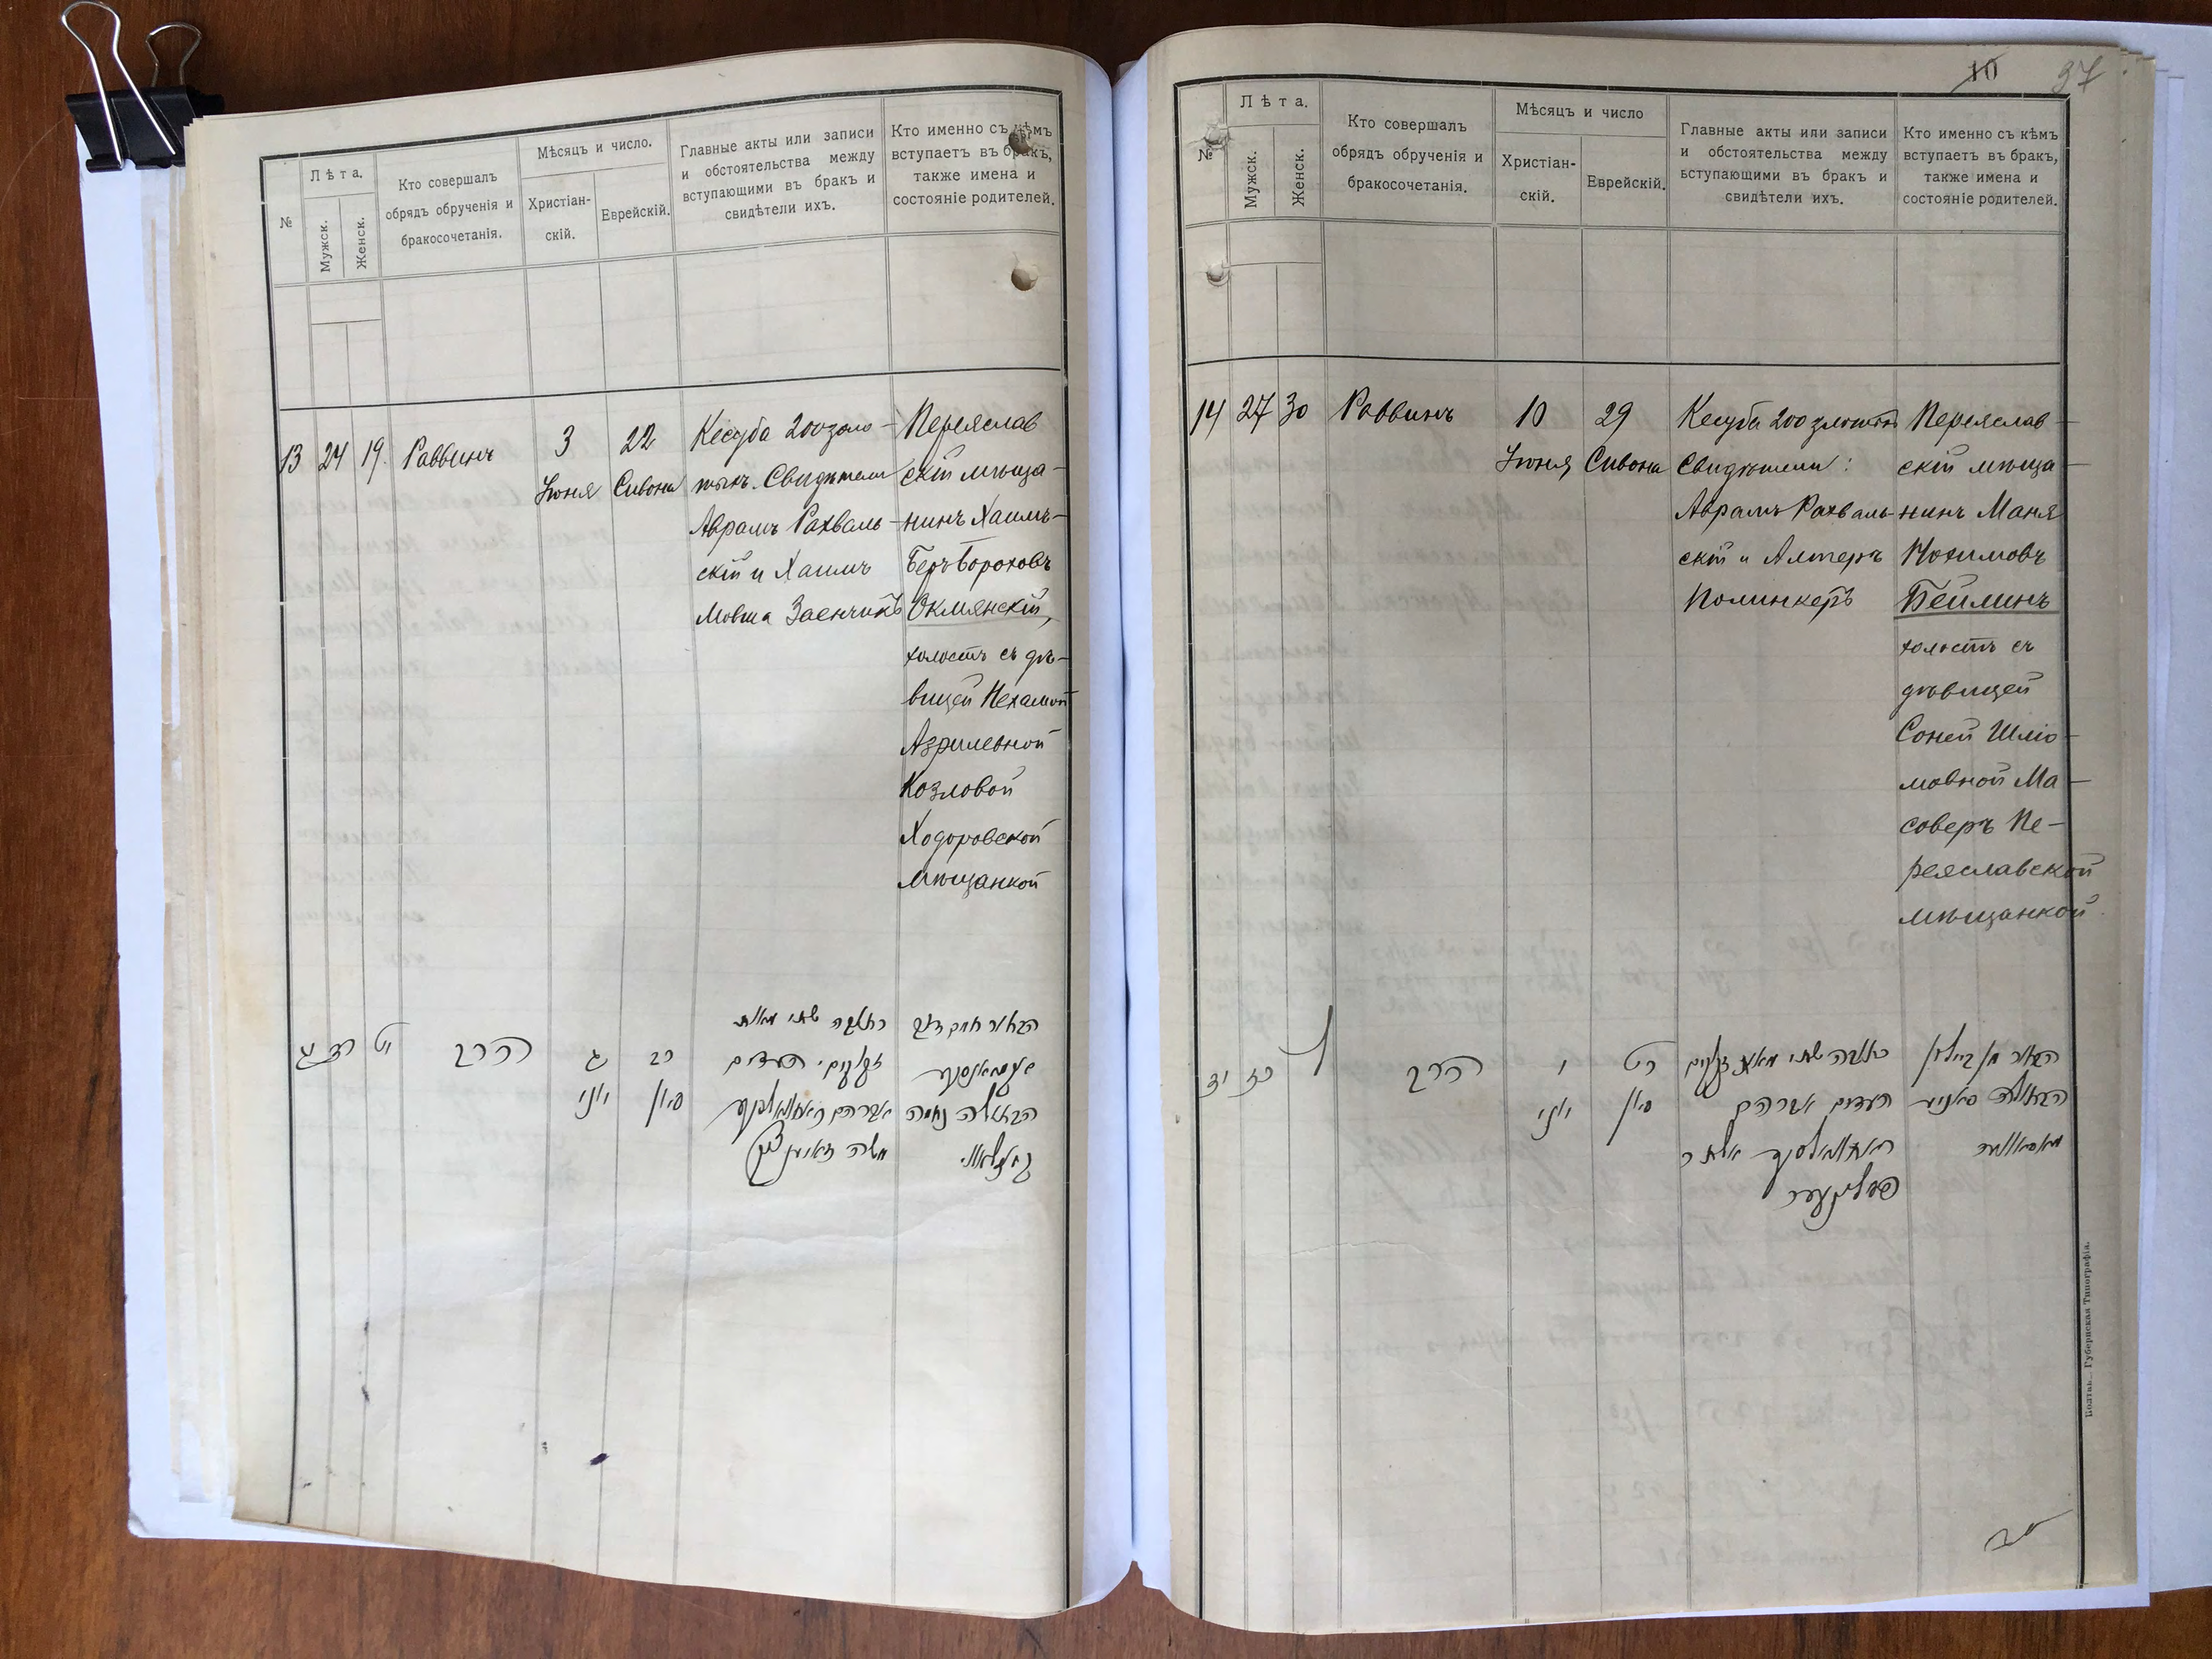 №
Лѣта.
Мужск.
Женск.
Кто совершалъ
обрядъ обрученія и
бракосочетанія.
Мѣсяцъ и число.
Христіан-
скій.
Еврейскій.
Главные акты или записи
и обстоятельства между
вступающими въ бракъ и
свидѣтели ихъ.
Кто именно съ кѣмъ
вступаетъ въ бракъ,
также имена и
состояніе родителей.
13
24
19.
Раввинъ
3
Іюня
22
Сивона
Кесуба 200 золо-
тыхъ. Свидѣтели
Аврамъ Рахваль-
скій и Хаимъ
Мовша Заенчикъ
Переяслав
скій мѣща-
нинъ Хаимъ-
Беръ Бороховъ
Окмянскій,
холостъ съ дѣ-
вицей Нехамой
Азрилевной
Козловой
Ходоровской
мѣщанкой
יג
כד
יט
הרב
ג
יוני
כב
סיון
כתובה שתי מאות
זהובים. העדים
אברהם
משה
הבחור חיים בער
הבתולה נחמה
10
37
№
Лѣта.
Мужск.
Женск.
Кто совершалъ
обрядъ обрученія и
бракосочетанія.
Мѣсяцъ и число
Христіан-
скій.
Еврейскій.
Главные акты или записи
и обстоятельства между
вступающими въ бракъ и
свидѣтели ихъ.
Кто именно съ кѣмъ
вступаетъ въ бракъ,
также имена и
состояніе родителей.
14
27
30
Раввинъ
10
Іюня
29
Сивона
Кесуба 200 злотыхъ
Свидѣтели:
Аврамъ Рахваль-
скій и Алтеръ
Полинкеръ
Переяслав-
скій мѣща-
нинъ Маня
Нохимовъ
Бейлинъ
холостъ съ
дѣвицей
Соней Шліо-
мовной Ма-
соверъ Пе-
реяславской
мѣщанкой
יד
כז
ל
הרב
י
יוני
כט
סיון
כתובה שתי מאות זהובים
העדים אברהם
אלתר
פאלינקער
הבחור מן ביילין
הבתולה סאניע
Полтав. Губернская Типографія.